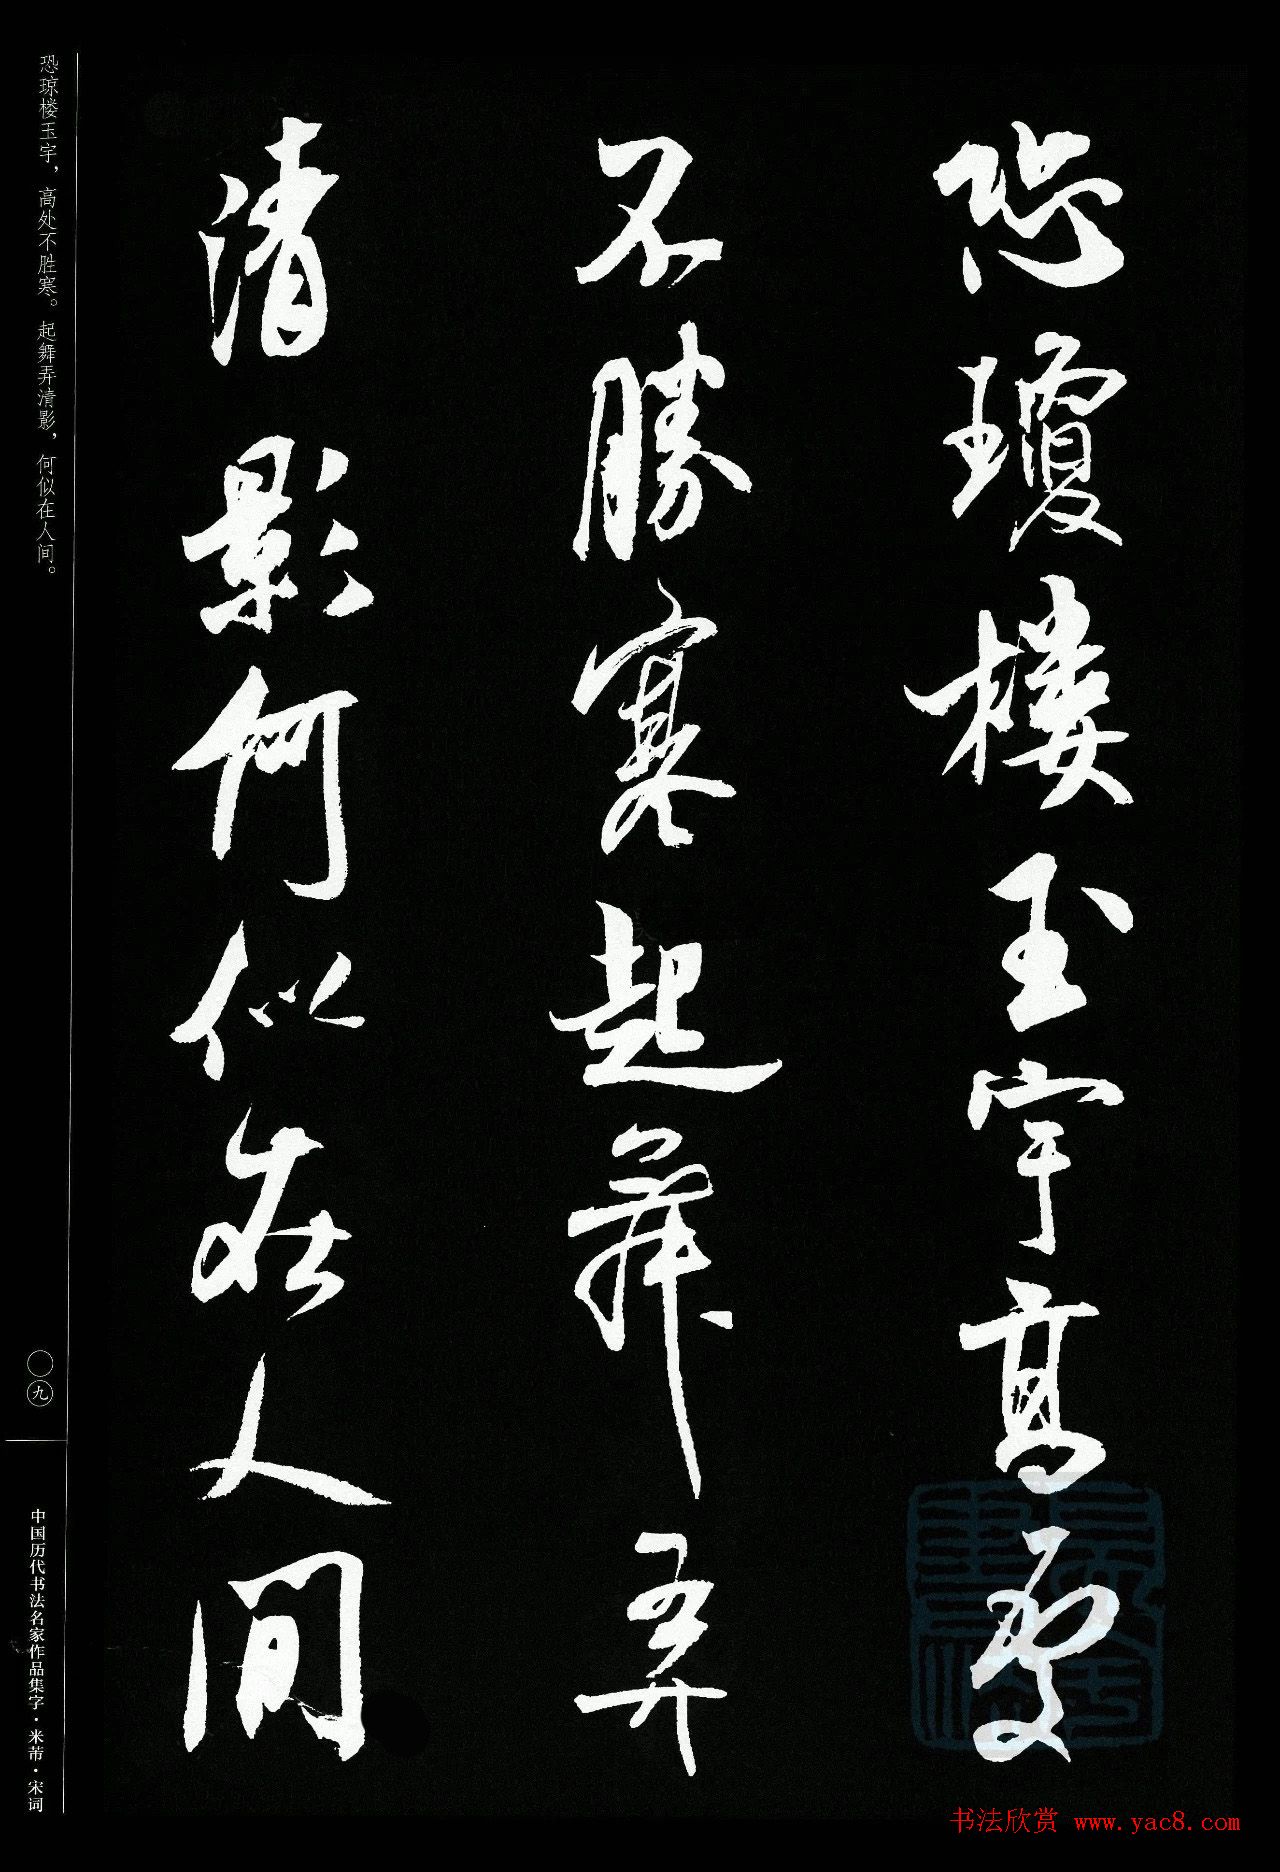 恐瓊樓玉宇高處
不勝寒起舞弄
清影何似在人間
恐琼楼玉宇，高处不胜寒。起舞弄清影，何似在人间。
〇九
中国历代书法名家作品集字·米芾·宋词
书法欣赏 www.yac8.com